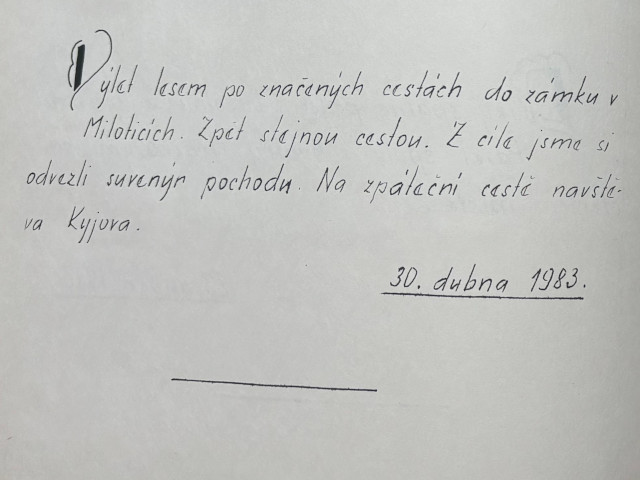 Výlet lesem po značených cestách do zámku v
Miloticích. Zpět stejnou cestou. Z cíle jsme si
odvezli suvenýr pochodu. Na zpáteční cestě navště-
va Kyjova.
30. dubna 1983.